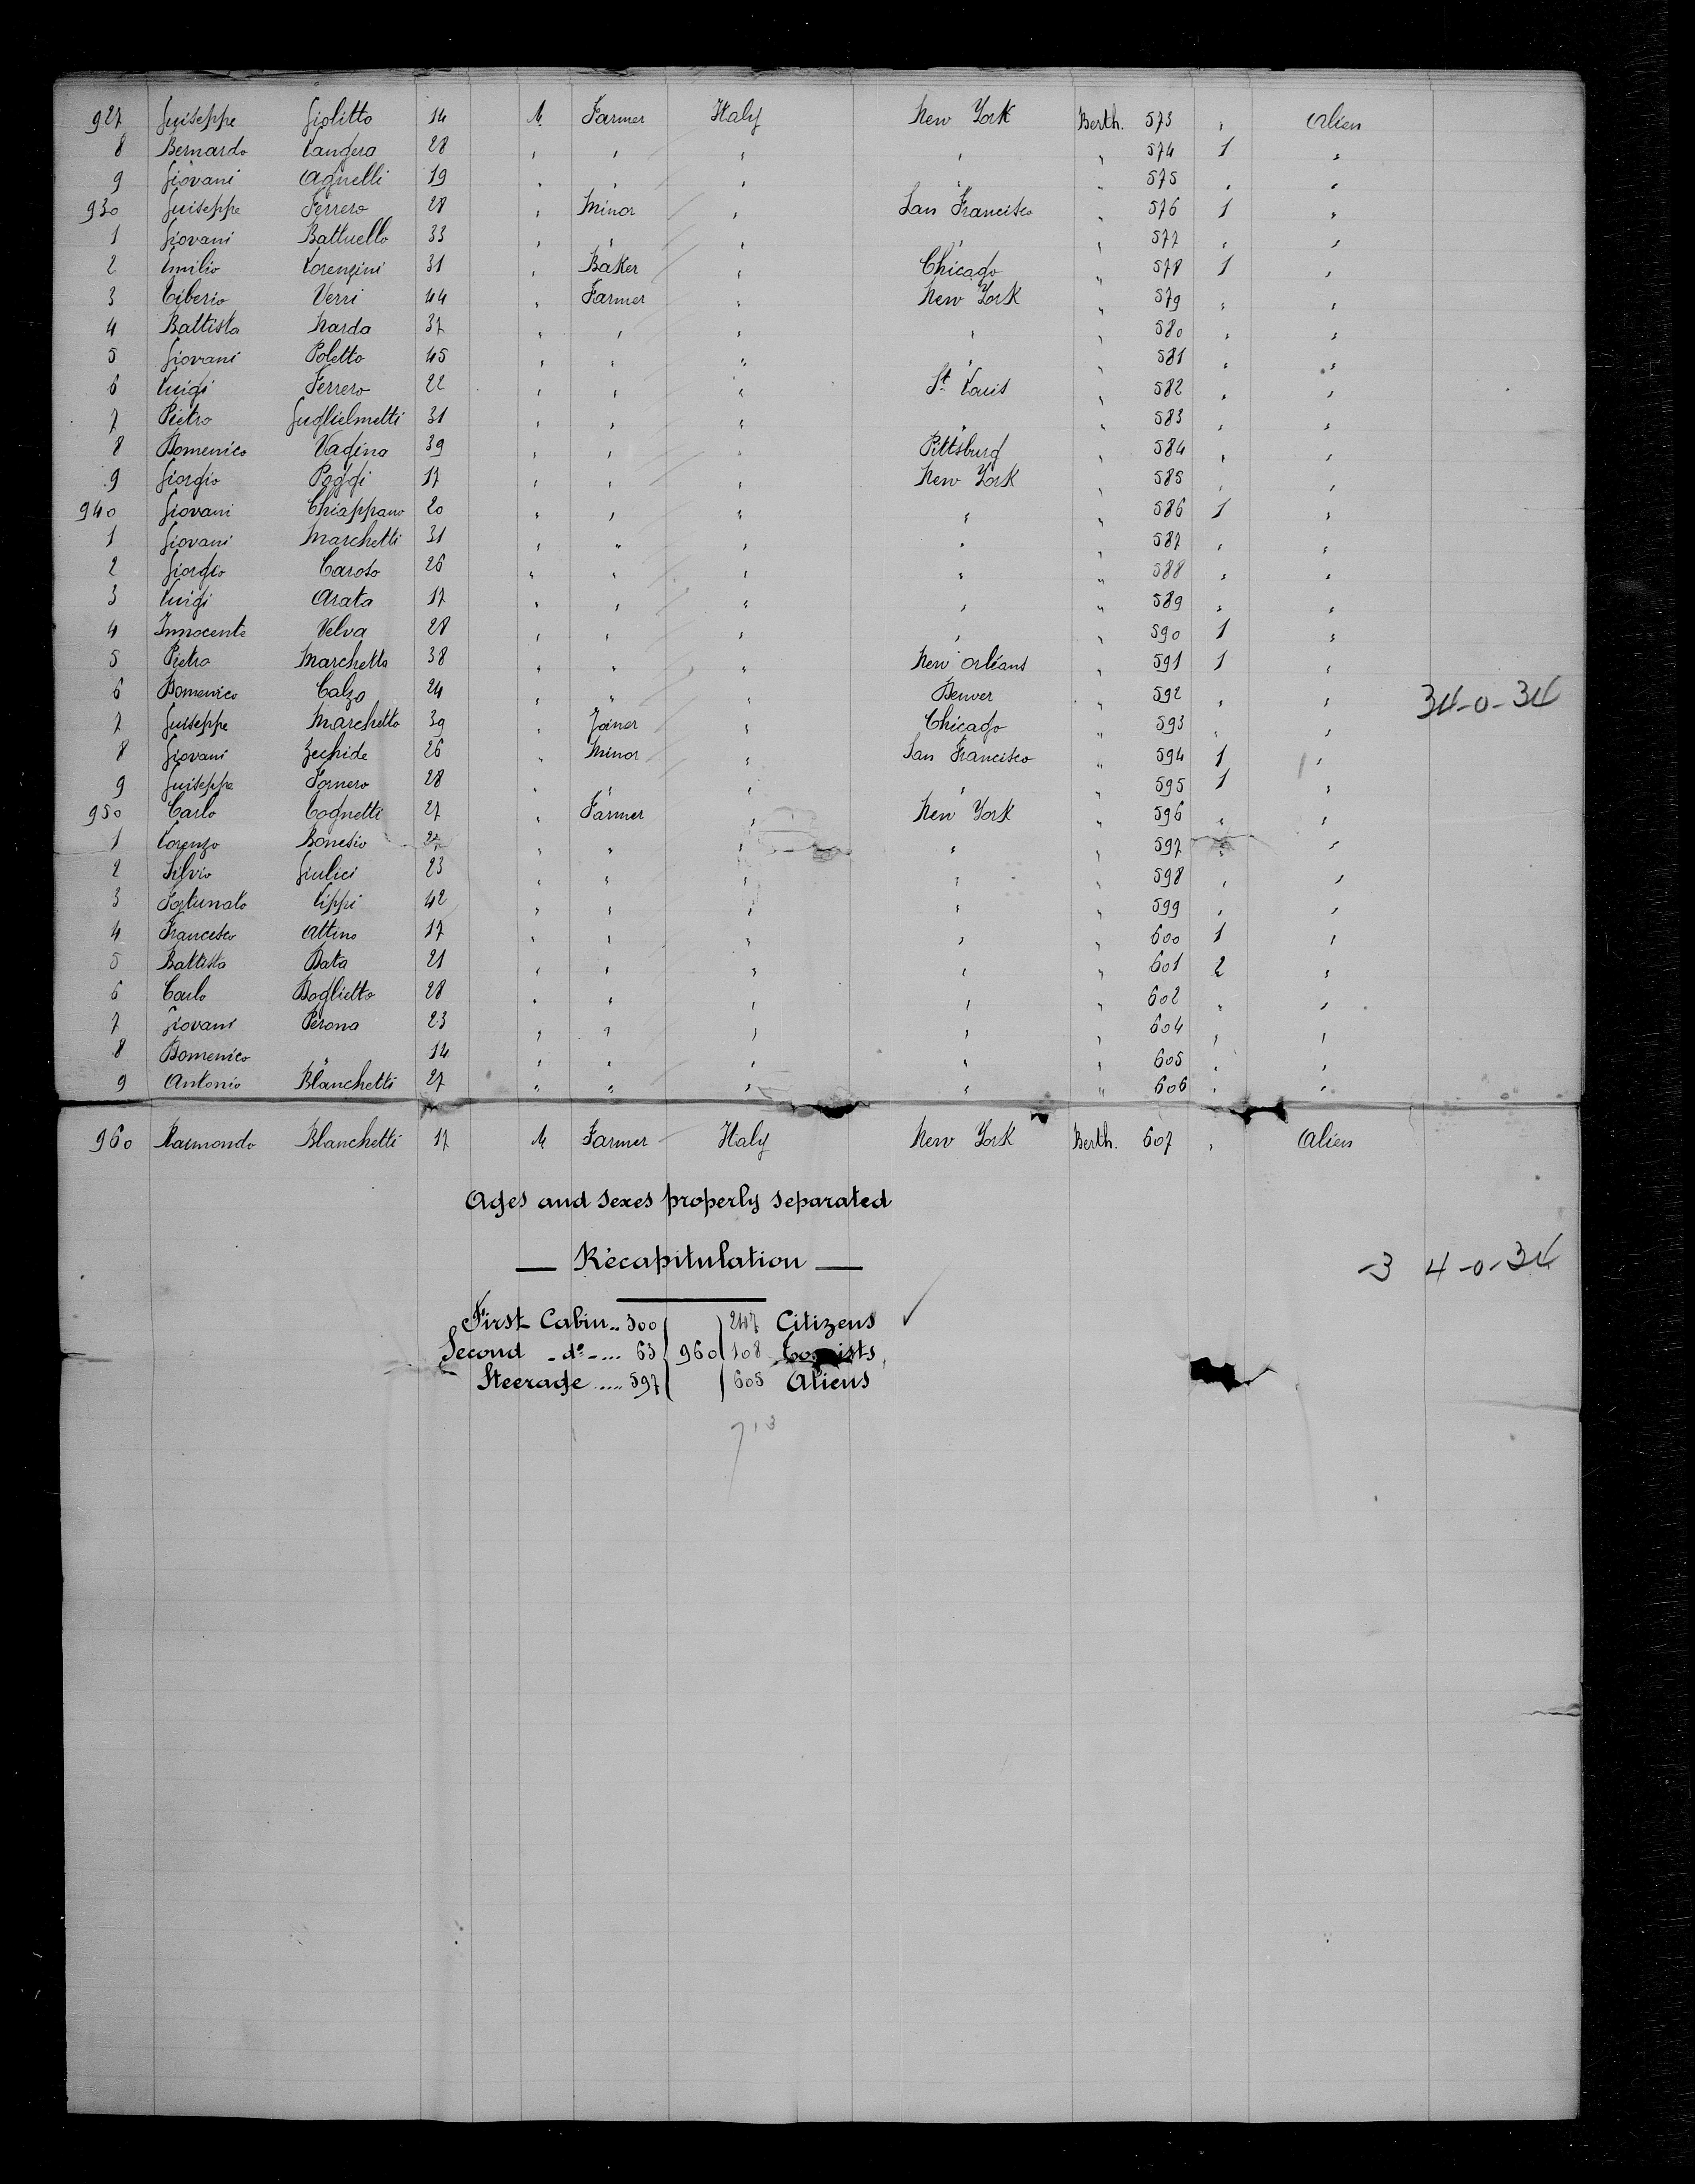 927 Guiseppe Giolitto 14 M. Farmer Italy New York Berth. 573 " Alien
8 Bernardo Langera 28 " " " " " 574 1 "
9 Giovani Agnelli 19 " " " " " 575 " "
930 Guiseppe Ferrero 28 " Minor " San Francisco " 576 1 "
1 Giovani Battuello 33 " " " " " 577 " "
2 Emilio Lorenzini 31 " Baker " Chicago " 578 1 "
3 Tiberio Verri 44 " Farmer " New York " 579 " "
4 Battista Narda 37 " " " " " 580 " "
5 Giovani Poletto 45 " " " " " 581 " "
6 Luigi Ferrero 22 " " " St Louis " 582 " "
7 Pietro Guglielmetti 31 " " " " " 583 " "
8 Domenico Vagina 39 " " " Pittsburg " 584 " "
9 Giorgio Poggi 17 " " " New York " 585 " "
940 Giovani Chiappano 20 " " " " " 586 1 "
1 Giovani Marchetti 31 " " " " " 587 " "
2 Giorgio Caroso 26 " " " " " 588 " "
3 Luigi Arata 17 " " " " " 589 " "
4 Innocente Velva 28 " " " " " 590 1 "
5 Pietro Marchetto 38 " " " New Orléans " 591 1 "
6 Domenico Calzo 24 " " " Denver " 592 " " 34-0-34
7 Guiseppe Marchetto 39 " Joiner " Chicago " 593 " "
8 Giovani Zechide 26 " Minor " San Francisco " 594 1 "
9 Guiseppe Fornero 28 " " " " " 595 1 "
950 Carlo Cognetti 27 " Farmer " New York " 596 " "
1 Lorenzo Bonesio " " " " " 597 " "
2 Silvio Giulici 23 " " " " " 598 " "
3 Fortunato Lippi 42 " " " " " 599 " "
4 Francesco Attino 17 " " " " " 600 1 "
5 Battista Data 21 " " " " " 601 2 "
6 Carlo Boglietto 28 " " " " " 602 " "
7 Giovani Perona 23 " " " " " 604 " "
8 Domenico " 14 " " " " " 605 " "
9 Antonio Blanchetti 27 " " " " " 606 " "
960 Raimondo Blanchetti 17 M Farmer Italy New York Berth. 607 " Alien
Ages and sexes properly separated
— Récapitulation —
-3 4-0-34
First Cabin.. 300 247 Citizens ✓
Second - do -.... 63 960 108
Steerage ..... 597 605 Aliens
713